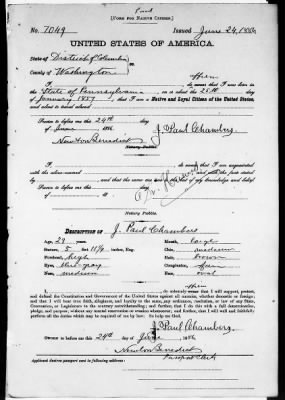 Paul
[FORM FOR NATIVE CITIZEN.]
No. 7049 Issued June 24, 1886
UNITED STATES OF AMERICA.
State of District of Columbia
County of Washington ss.
I, do affirm that I was born in the
State of Pennsylvania, on or about the 25th day
of January 1857, that I am a Native and Loyal Citizen of the United States,
and about to travel abroad
Sworn to before me this 24th day
of June 1886
J. Paul Chambers
Newton Benedict
Notary Public.
I, do swear that I am acquainted
with the above-named and with the facts stated
by and that the same are to the best of my knowledge and belief
Sworn to before me this day
of
Notary Public.
DESCRIPTION OF J. Paul Chambers
Age, 29 years. Mouth, large
Stature, 5 feet 11 1/4 inches, Eng. Chin, medium
Forehead, high Hair, brown
Eyes, blue gray Complexion, fair
Nose, medium Face, oval
affirm
I, do solemnly swear that I will support, protect,
and defend the Constitution and Government of the United States against all enemies, whether domestic or foreign;
and that I will bear true faith, allegiance, and loyalty to the same, any ordinance, resolution, or law of any State,
Convention, or Legislature to the contrary notwithstanding; and further, that I do this with a full determination,
pledge, and purpose, without any mental reservation or evasion whatsoever; and further, that I will well and faithfully
perform all the duties which may be required of me by law: So help me God.
J. Paul Chambers
Sworn to before me this 24th day of June, 1886
Newton Benedict
Passport Clerk
Applicant desires passport sent to following address: